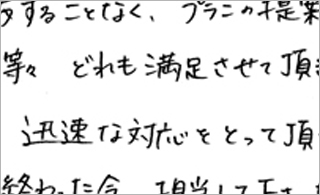 することなく、プランの提案
等々 どれも満足させて頂き
迅速な対応をとって頂
終わった今、担当して下さ